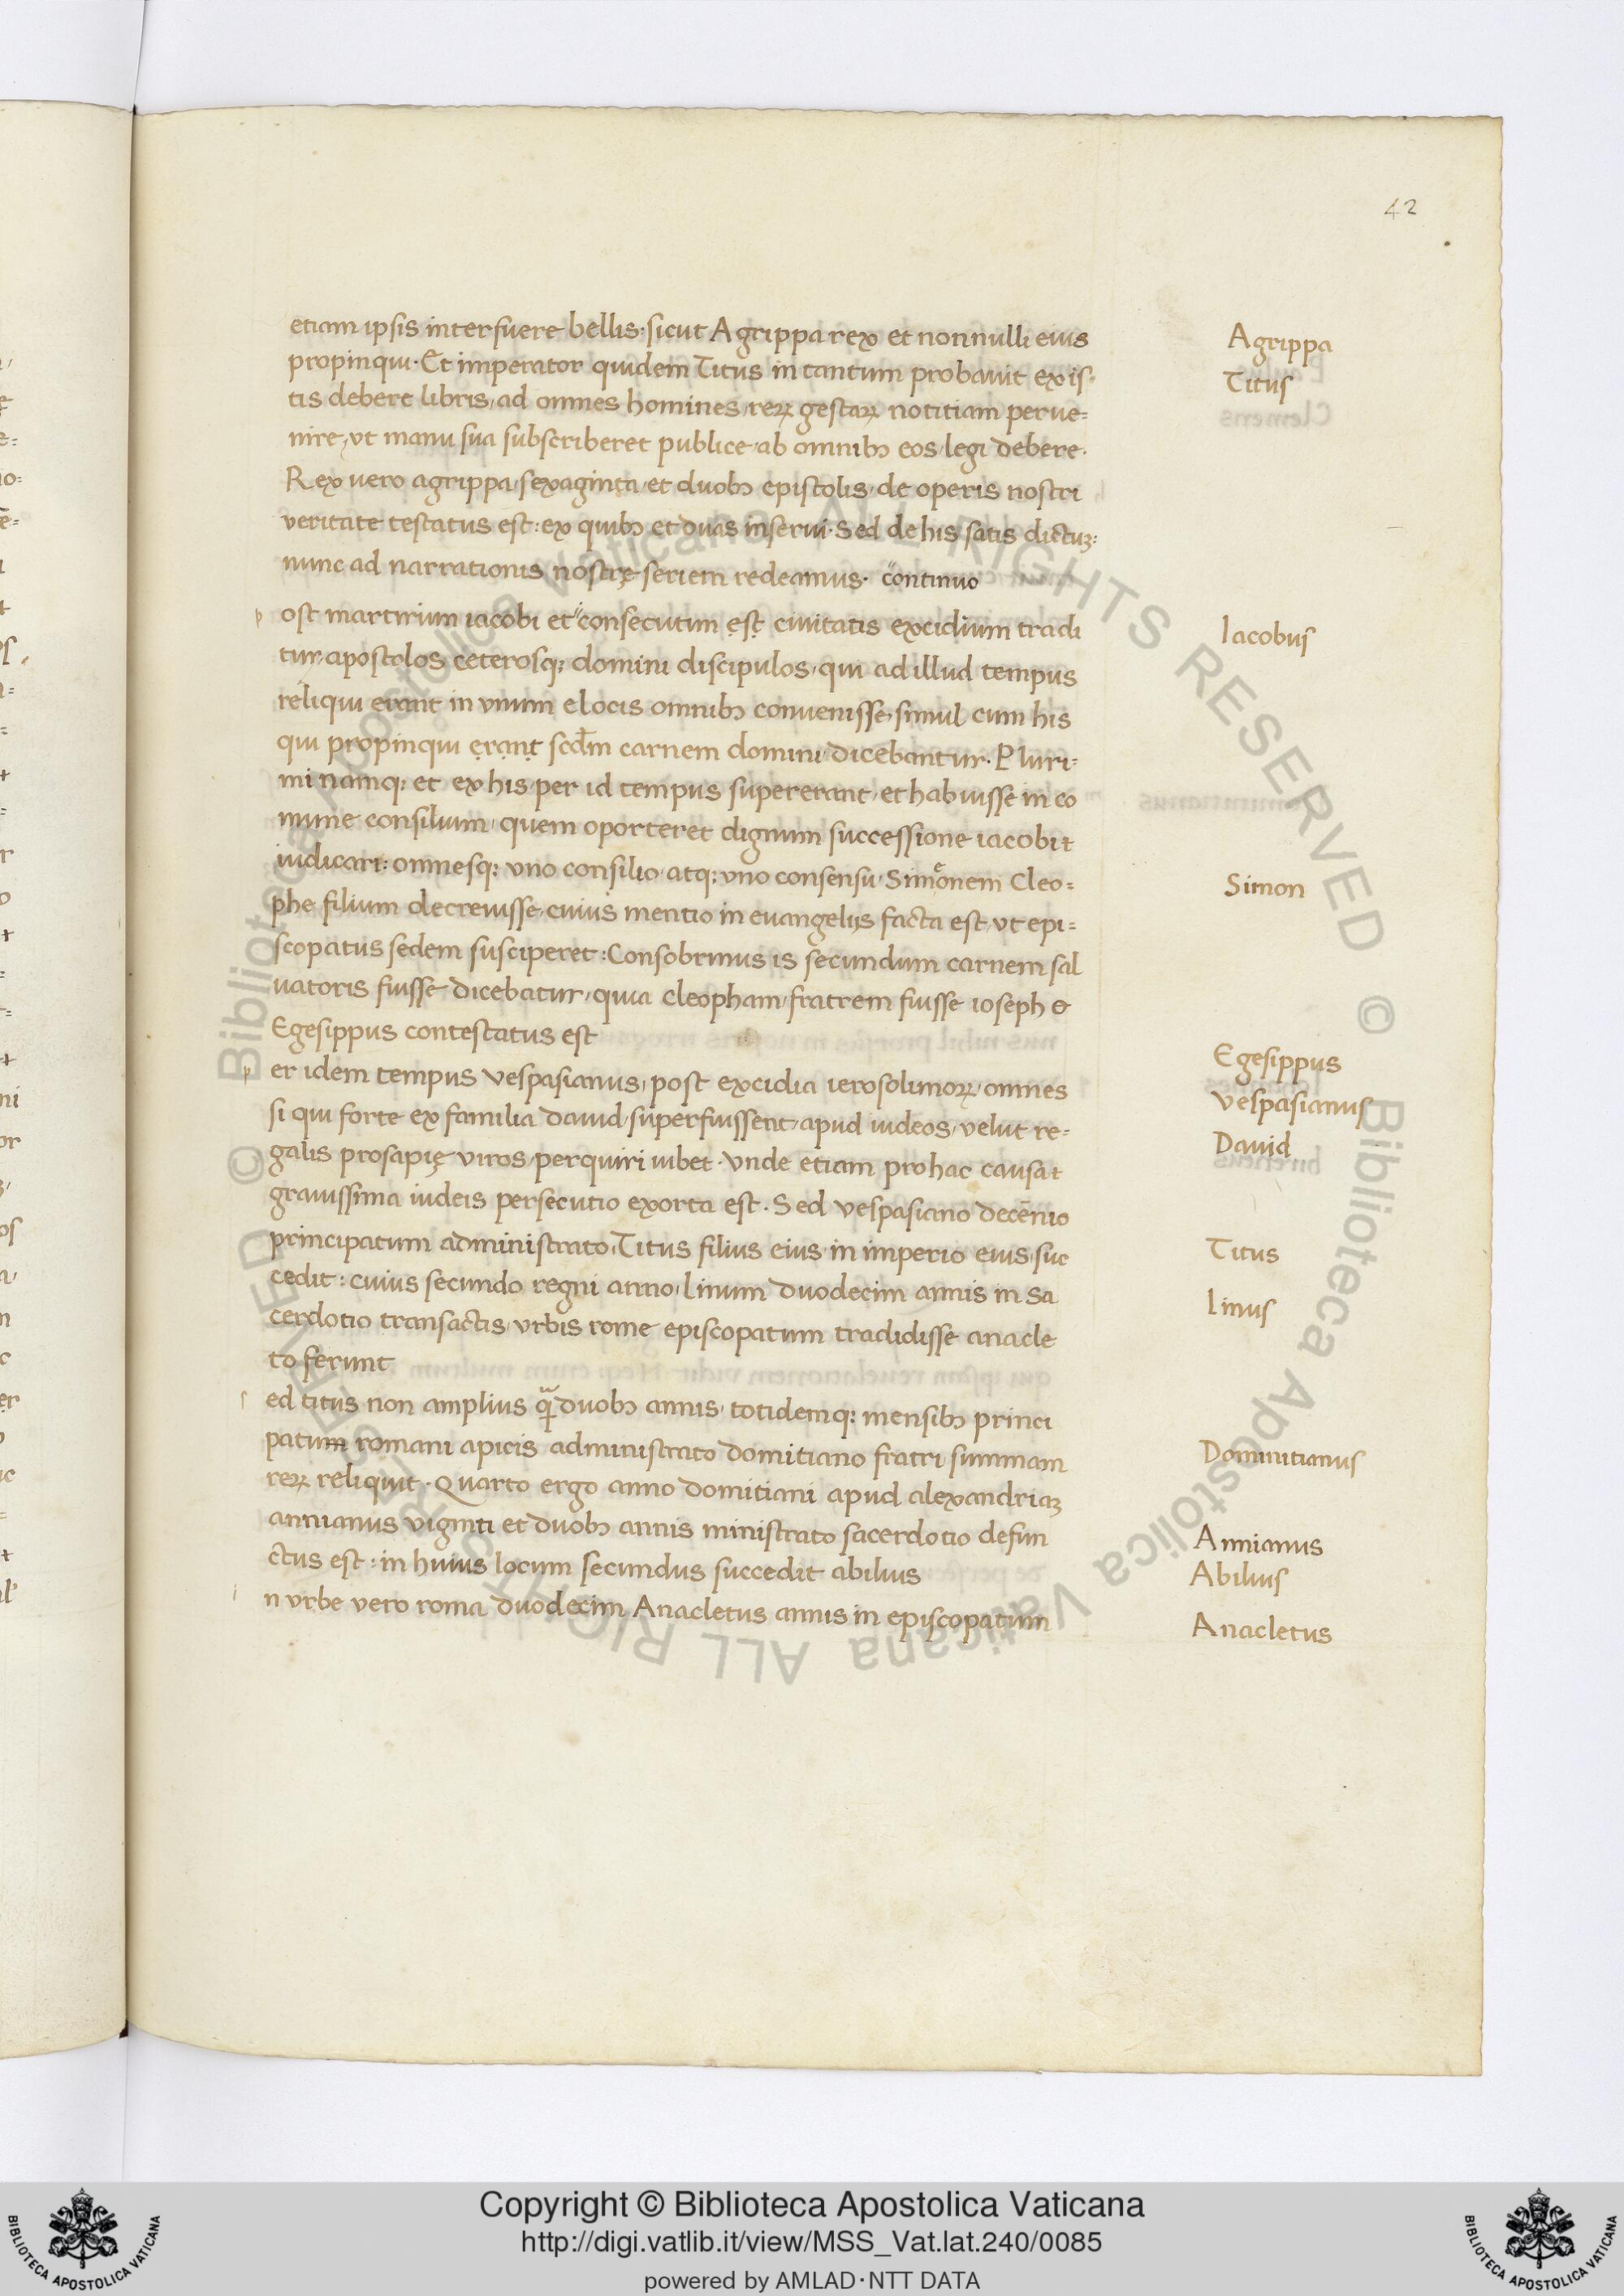 42
etiam ipsis interfuere bellis: sicut Agrippa rex et nonnulli eius
propinqui. Et imperator quidem Titus in tantum probavit ex is-
tis debere libris, ad omnes homines, reꝝ gestaꝝ notitiam perve=
nire, vt manu sua subscriberet publice, ab omnibꝫ eos legi debere.
Rex vero agrippa, sexaginta, et duobꝫ epistolis, de operis nostri
veritate testatus est: ex quibꝫ et duas inserui. Sed de his satis dictuꝫ:
nunc ad narrationis nostrę seriem redeamus. continuo
p ost martirium iacobi et consecutum est civitatis excidium tradi
tur, apostolos ceterosqꝫ domini discipulos, qui ad illud tempus
reliqui erant in vnum e locis omnibꝫ convenisse, simul cum his
qui propinqui erant scdm̄ carnem domini dicebantur. Pluri-
mi namqꝫ et ex his, per id tempus supererant, et habuisse in co
mune consilium, quem oporteret dignum successione iacobi
iudicari: omnesqꝫ uno consilio, atqꝫ uno consensu, Simeonem Cleo=
phe filium decrevisse, cuius mentio in euangeliis facta est, vt epi=
scopatus sedem susciperet: Consobrinus is secundum carnem sal
uatoris fuisse dicebatur, quia cleopham, fratrem fuisse ioseph
Egesippus contestatus est
p er idem tempus vespasianus, post excidia ierosolimoꝝ, omnes
si qui forte ex familia david, superfuissent, apud iudeos, velut re=
galis prosapię viros, perquiri iubet. Vnde etiam pro hac causa
gravissima iudeis persecutio exorta est. Sed vespasiano decēnio
principatum administrato, Titus filius eius in imperio eius suc
cedit: cuius secundo regni anno, linum duodecim annis in sa
cerdotio transactis, vrbis rome episcopatum tradidisse anacle
to ferunt
s ed titus non amplius qᷓ duobꝫ annis, totidemqꝫ mensibꝫ princi
patum romani apicis administrato domitiano fratri summam
reꝝ reliquit. Quarto ergo anno domitiani apud alexandriaꝫ
annianus viginti et duobꝫ annis ministrato sacerdotio defun
ctus est: in huius locum secundus succedit abilius
i n vrbe vero roma duodecim Anacletus annis in episcopatum
Agrippa
Titus
Iacobus
Simon
Egesippus
Vespasianus
David
Titus
linus
Dominitianus
Annianus
Abilius
Anacletus
© Biblioteca Apostolica Vaticana ALL RIGHTS RESERVED
© Biblioteca Apostolica Vaticana ALL RIGHTS RESERVED
BIBLIOTECA APOSTOLICA VATICANA
Copyright © Biblioteca Apostolica Vaticana
http://digi.vatlib.it/view/MSS_Vat.lat.240/0085
powered by AMLAD·NTT DATA
BIBLIOTECA APOSTOLICA VATICANA